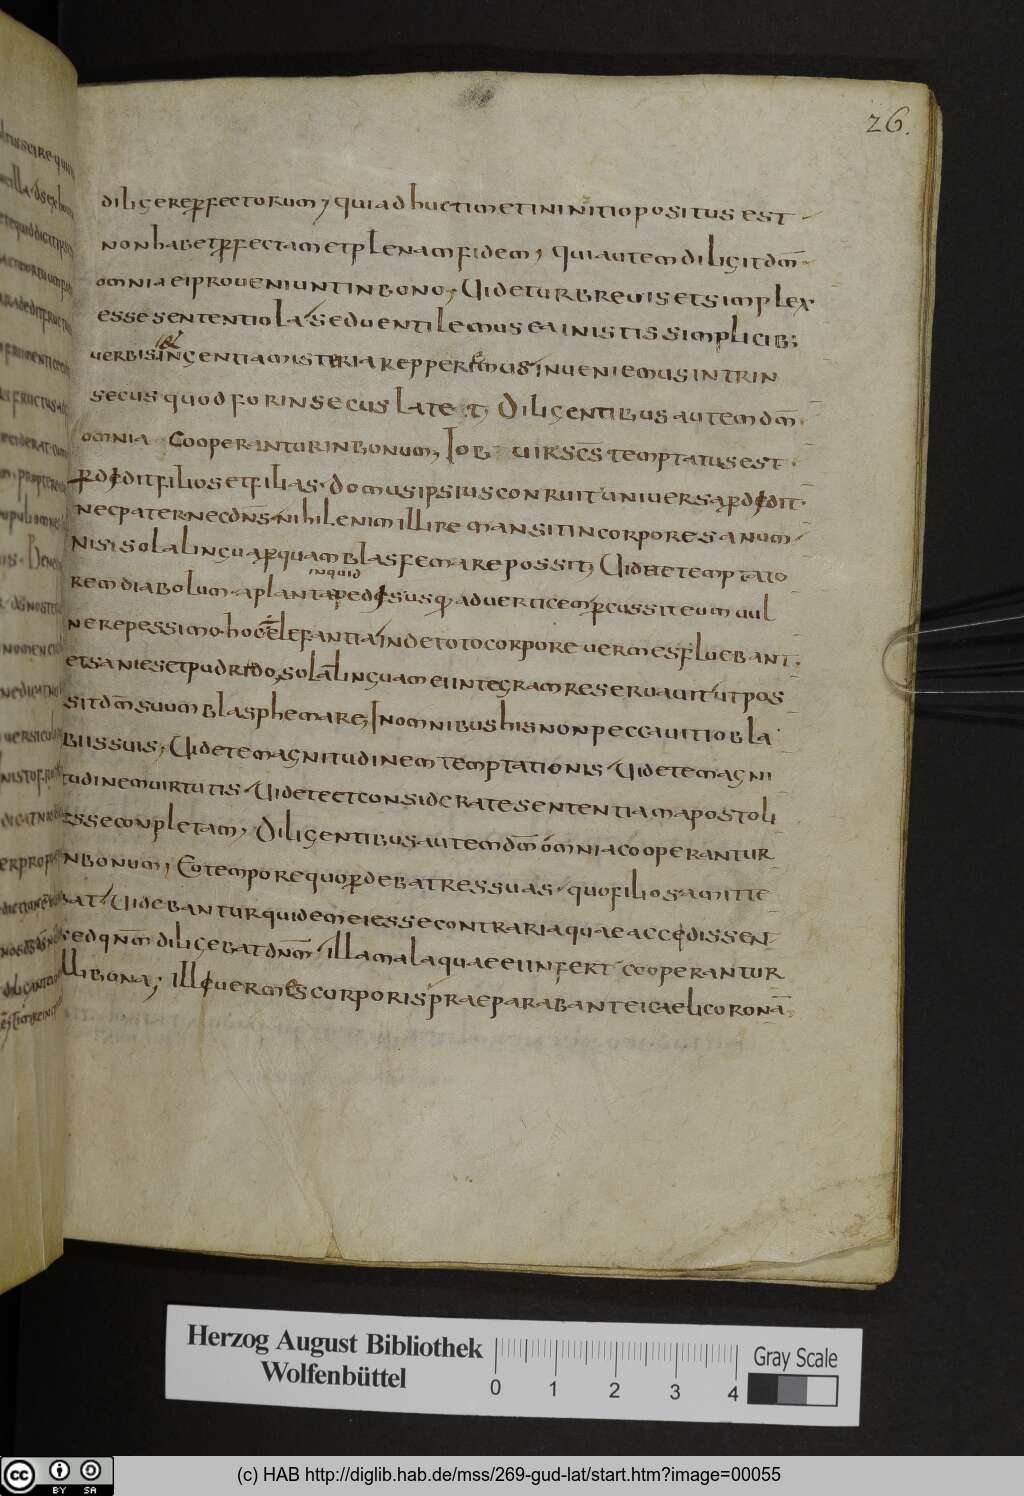 26.
diligere perfectorum, qui adhuc timet in initio positus est
non habet ꝑfectam et plenam fidem, qui autem diligit dm̄
omnia ei proueniunt in bono, Uidetur breuis et simplex
esse sententiola sed uentilemus ea in istis simplicib;
uerbis ingentia misteria reppererimus inueniemus intrin
secus quod forinsecus latet, Diligentibus autem dm̄
omnia cooperantur in bonum, Iob uir sc̄s temptatus est
ꝑdedit filios et filias domus ipsius conruit uniuersa ꝑdedit
nec pater nec dn̄s nihil enim illi remansit in corpore sanum
nisi sola lingua ꝑ quam blasfemare possit, Uidete temptato
inquid
rem diabolum a planta pedes usq; ad uerticem ꝑcussit eum uul
nere pessimo hoc elefantia inde toto corpore uermes fluebant,
et sanies et pudrido, sola linguam ei integram reseruauit ut pos
sit dm̄ suum blasphemare, In omnibus his non peccauit iob la
biis suis, Uidete magnitudinem temptationis Uidete magni
tudinem uirtutis Uidete et considerate sententiam apostoli
esse conpletam, Diligentibus autem dm̄ omnia cooperantur
in bonum, Eo tempore quo ꝑdebat res suas quo filios amitte
bat Uidebantur quidem ei esse contraria quae accedissent
sed qn̄m diligebat dn̄m illa mala quae ei infert cooperantur
illi bona; Ille uermes corporis praeparabant ei caeli coronā;
Herzog August Bibliothek
Wolfenbüttel
0 1 2 3 4
Gray Scale
cc BY SA
(c) HAB http://diglib.hab.de/mss/269-gud-lat/start.htm?image=00055